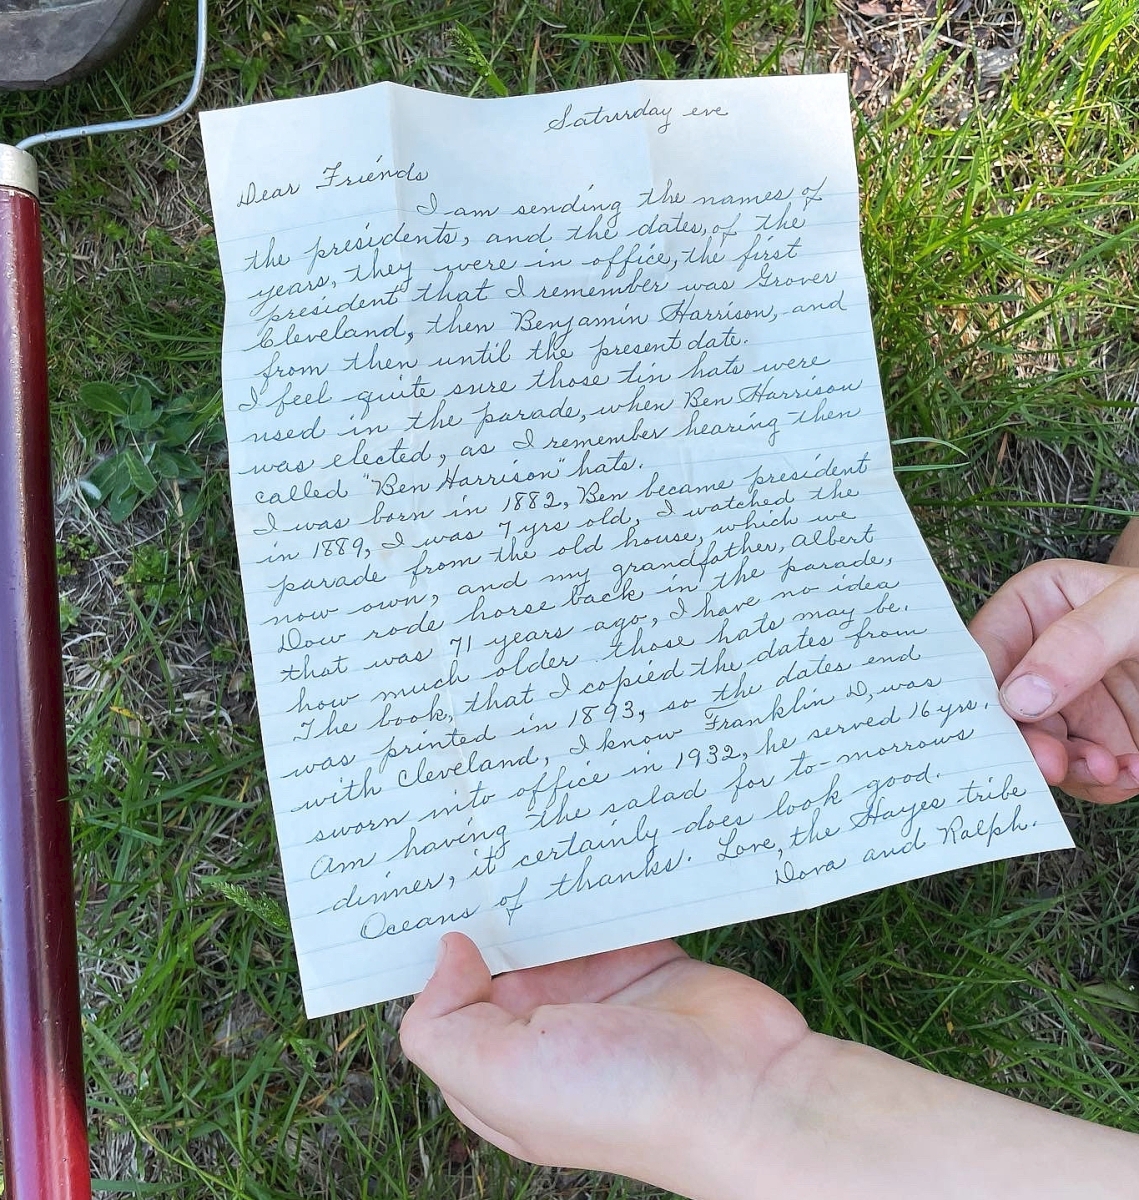 Saturday eve
Dear Friends
I am sending the names of
the presidents, and the dates, of the
years, they were in office, the first
president that I remember was Grover
Cleveland, then Benjamin Harrison, and
from then until the present date.
I feel quite sure those tin hats were
used in the parade, when Ben Harrison
was elected, as I remember hearing then
called "Ben Harrison" hats.
I was born in 1882, Ben became president
in 1889, I was 7 yrs old, I watched the
parade from the old house, which we
now own, and my grandfather, Albert
Dow rode horse back in the parade,
that was 71 years ago, I have no idea
how much older those hats may be.
The book, that I copied the dates from
was printed in 1893, so the dates end
with Cleveland, I know Franklin D, was
sworn into office in 1932, he served 16 yrs.
Am having the salad for to-morrows
dinner, it certainly does look good.
Oceans of thanks. Love, the Hayes tribe
Dora and Ralph.